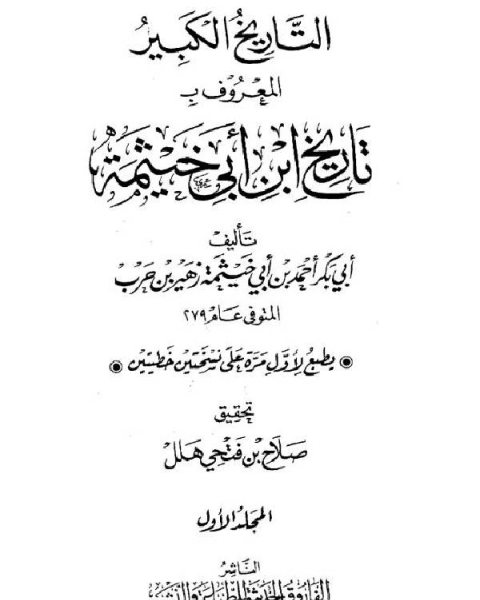 التَّارِيخُ الكَبِيرُ
المَعْرُوف بِـ
تَارِيخِ ابْنِ أَبِي خَيْثَمَةَ
تَأليف
أبي بَكر أحمَد بن أبي خَيثَمة زهَير بن حَرب
المتوفى عَام ٢٧٩
يطبع لأوّل مَرة عَلى نسْختَين خَطيتَين
تحقيق
صَلَاح بن فَتحِي هَلل
المجَلد الأول
النّاشِر
الفَارُوق الحَدِيثَة للطِّبَاعَة وَالنَّشْر